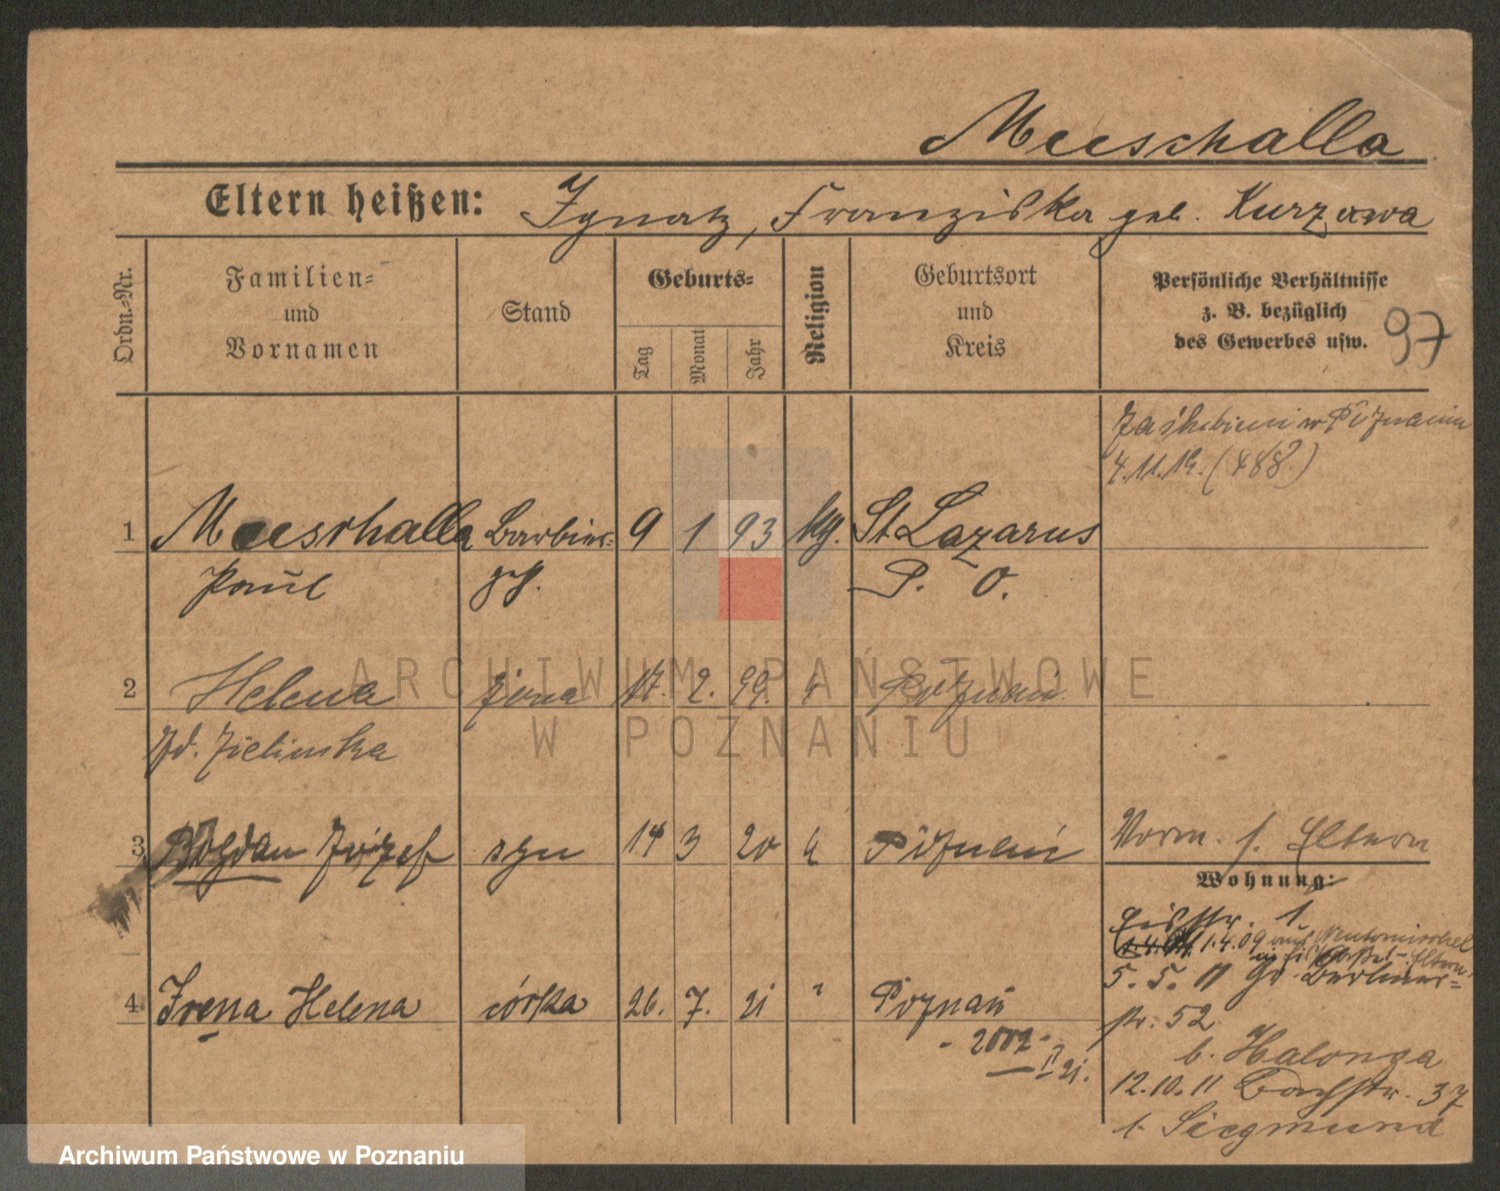 Meeschalla
Eltern heißen: Ignatz, Franziska geb. Kurzawa
Ordn.-Nr.
Familien- und Vornamen
Stand
Geburts-
Tag
Monat
Jahr
Religion
Geburtsort und Kreis
Persönliche Verhältnisse
z. B. bezüglich
des Gewerbes usw.
97
w Poznaniu
4.11.19. (488.)
1 Meeschalla Barbier- 9 1 93 kg. St Lazarus
Paul geh. P. O.
2 Helena żona 17. 2. 99. " Poznań
zd. Zielinska
3 Bogdan Józef syn 14 3 20 k Poznań
Vorm. s. Eltern
Wohnung:
4. Irena Helena córka 26. 7. 21 " Poznań
- 2002 -
II 21.
Eisstr. 1.
1.4.09 aus Neutomischel
5. 5. 11 Gr. Berliner-
str. 52
b. Halonga
12.10.11 Bachstr. 37
b. Siegmund
ARCHIWUM PAŃSTWOWE
W POZNANIU
Archiwum Państwowe w Poznaniu